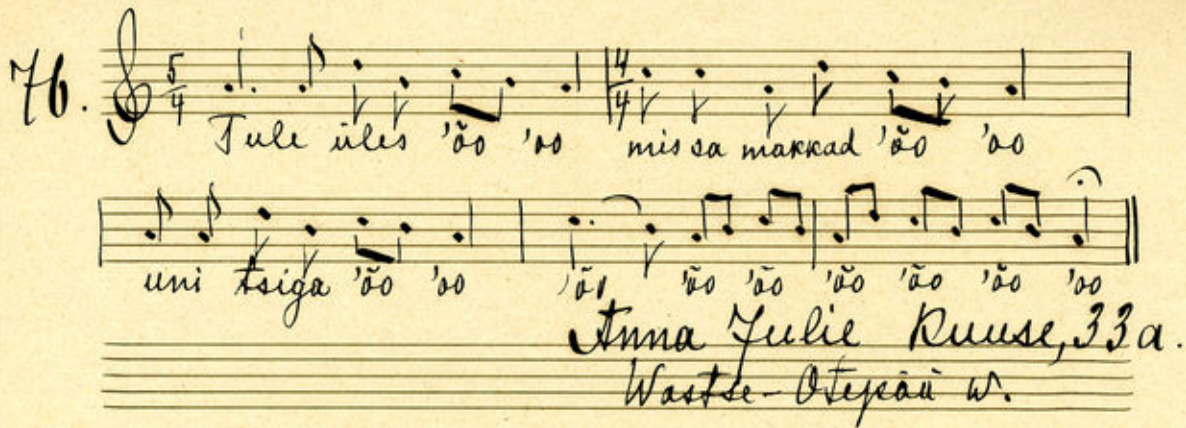 76. 5/4 4/4
Tule üles 'õo 'oo missa makkad 'õo 'oo
uni tsiga 'õo 'oo 'õo 'õo 'õo 'õo 'õo 'õo 'oo
Anna Julie Kuuse, 33 a.
Wastse-Otepää w.